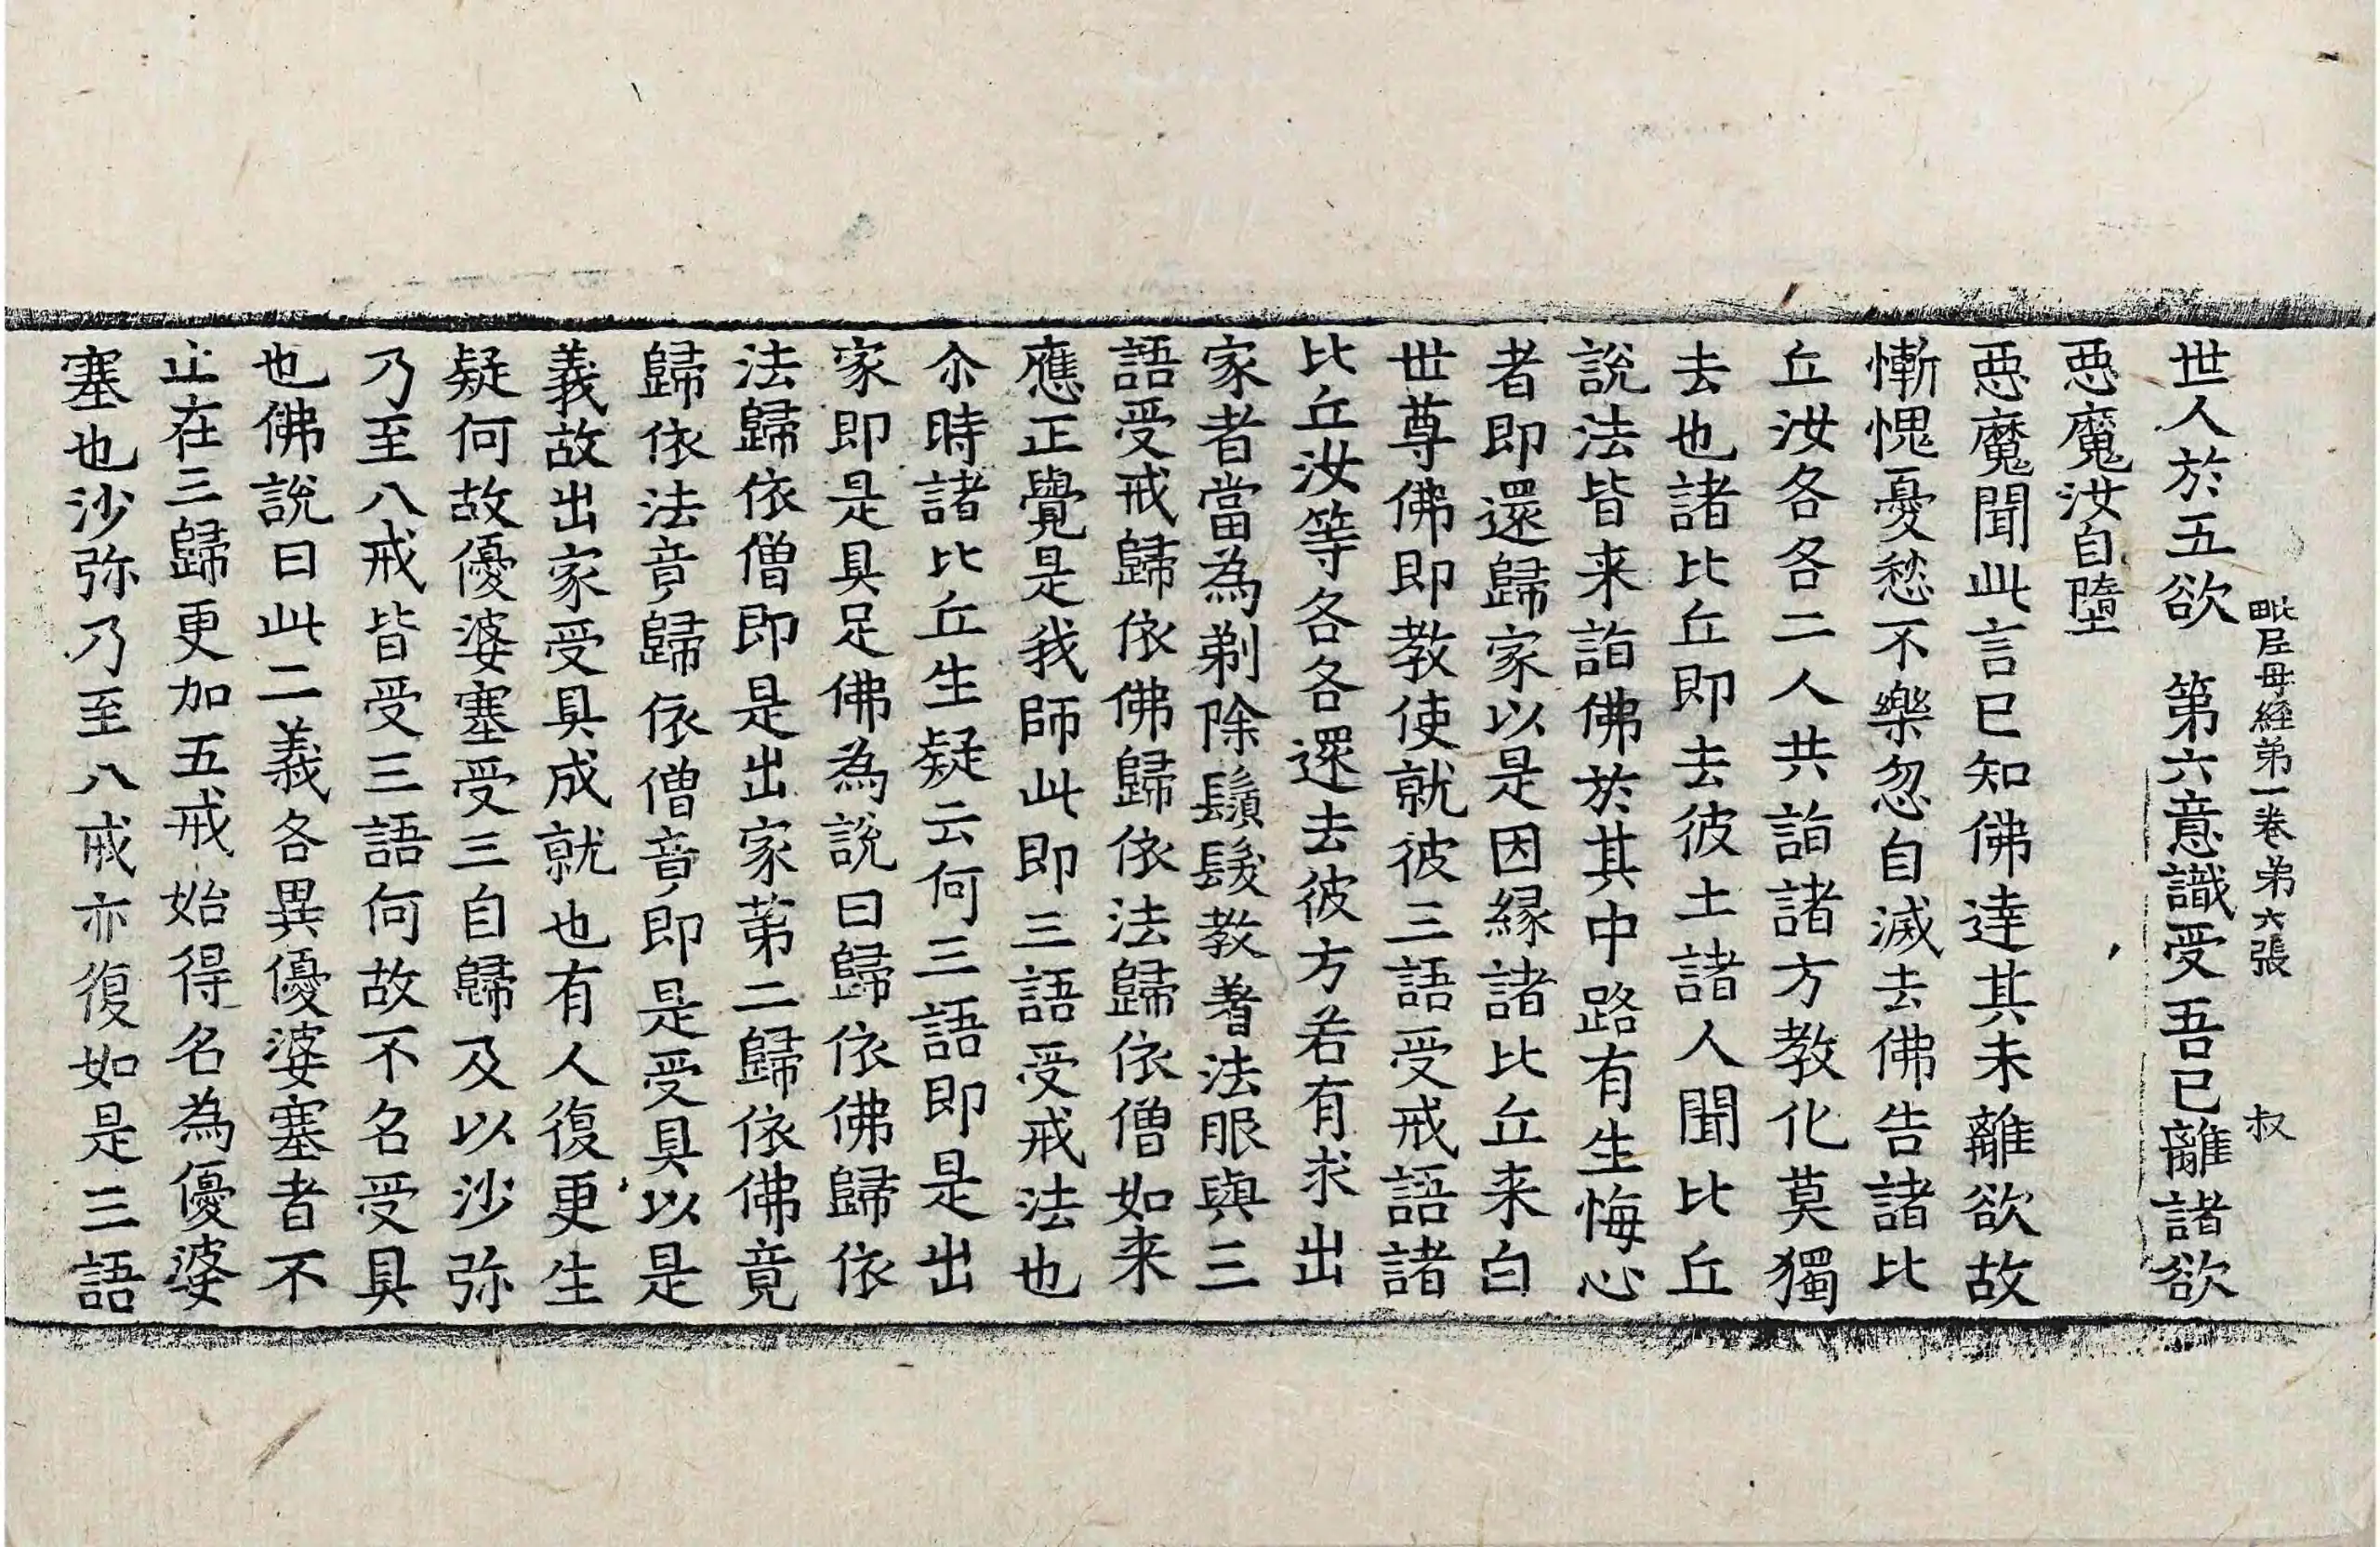 毗尼母經第一卷第六張 叔
世人於五欲 第六意識受吾已離諸欲
惡魔汝自墮
惡魔聞此言已知佛達其未離欲故
慚愧憂愁不樂忽自滅去佛告諸比
丘汝各各二人共詣諸方教化莫獨
去也諸比丘即去彼土諸人聞比丘
說法皆来詣佛於其中路有生悔心
者即還歸家以是因緣諸比丘来白
世尊佛即教使就彼三語受戒語諸
比丘汝等各各還去彼方若有求出
家者當為剃除鬚髮教著法服與三
語受戒歸依佛歸依法歸依僧如来
應正覺是我師此即三語受戒法也
尒時諸比丘生疑云何三語即是出
家即是具足佛為說曰歸依佛歸依
法歸依僧即是出家第二歸依佛竟
歸依法竟歸依僧竟即是受具以是
義故出家受具成就也有人復更生
疑何故優婆塞受三自歸及以沙弥
乃至八戒皆受三語何故不名受具
也佛說曰此二義各異優婆塞者不
止在三歸更加五戒始得名為優婆
塞也沙弥乃至八戒亦復如是三語